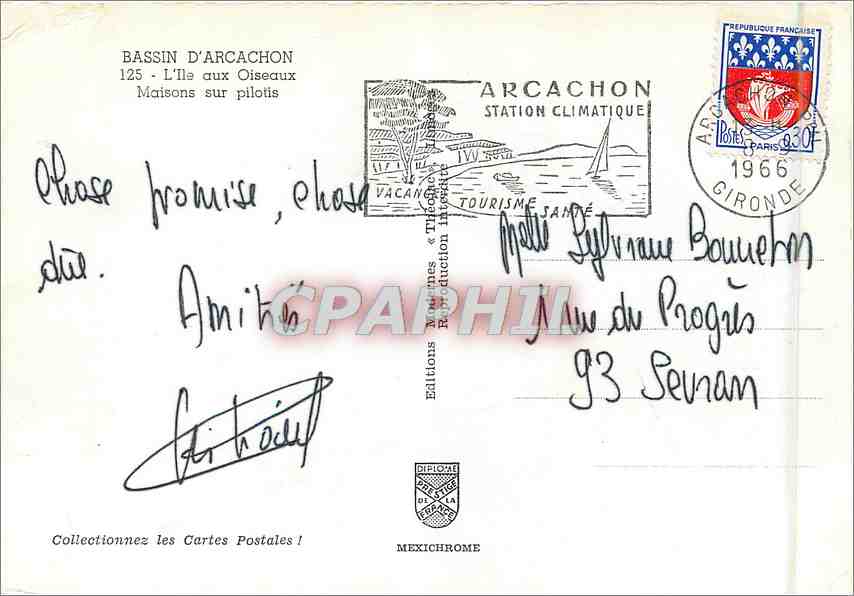 BASSIN D'ARCACHON
125 - L'Ile aux Oiseaux
Maisons sur pilotis
Chose promise, chose
dûe.
Amitiés
Collectionnez les Cartes Postales !
Editions Modernes « Théojac », Limoges
Reproduction interdite
DIPLOME
PRESTIGE
DE LA
FRANCE
MEXICHROME
ARCACHON
STATION CLIMATIQUE
VACANCES
TOURISME
SANTÉ
REPUBLIQUE FRANÇAISE
POSTES
0,30F
PARIS
ARCACHON
1966
GIRONDE
Melle Sylviane Bonneton
1 Rue du Progrès
93 Sevran
CPAPHIL